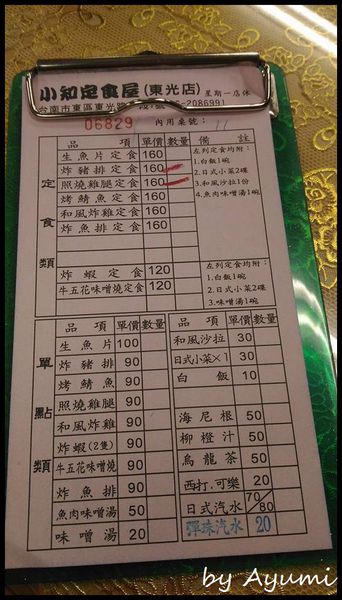 小知定食屋(東光店) 星期一店休
台南市東區東光路 2086991
06829 內用桌號: 11
品項 單價 數量 備註
定食類
生魚片定食 160
炸豬排定食 160
照燒雞腿定食 160
烤鯖魚定食 160
和風炸雞定食 160
炸魚排定食 160
左列定食均附:
1.白飯1碗
2.日式小菜2碟
3.和風沙拉1份
4.魚肉味噌湯1碗
炸蝦定食 120
牛五花味噌燒定食 120
左列定食均附:
1.白飯1碗
2.日式小菜2碟
3.味噌湯1碗
單點類
品項 單價 數量
生魚片 100
炸豬排 90
烤鯖魚 90
照燒雞腿 90
和風炸雞 90
炸蝦(2隻) 90
牛五花味噌燒 90
炸魚排 90
魚肉味噌湯 50
味噌湯 20
品項 單價 數量
和風沙拉 30
日式小菜×1 30
白飯 10
海尼根 50
柳橙汁 50
烏龍茶 50
西打.可樂 20
日式汽水 70/80
彈珠汽水 20
by Ayumi